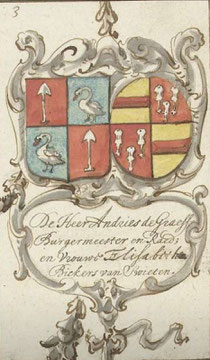 3
De Heer Andries de Graeff
Burgermeester en Raed;
en Vrouwe Elisabeth
Bickers van Swieten.